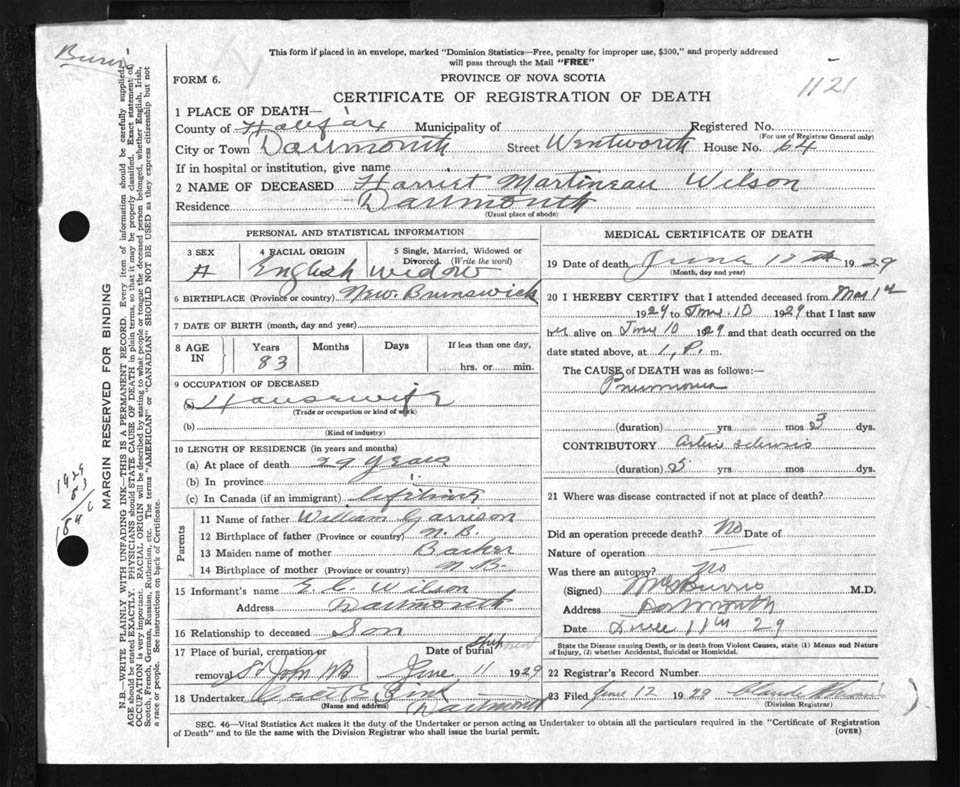 This form if placed in an envelope, marked "Dominion Statistics—Free, penalty for improper use, $300," and properly addressed
will pass through the Mail "FREE"
FORM 6.
PROVINCE OF NOVA SCOTIA
1121
CERTIFICATE OF REGISTRATION OF DEATH
1 PLACE OF DEATH—
County of Halifax Municipality of Registered No.
(For use of Registrar General only)
City or Town Dartmouth Street Wentworth House No. 64
If in hospital or institution, give name
2 NAME OF DECEASED Harriet Martineau Wilson
Residence Dartmouth
(Usual place of abode)
PERSONAL AND STATISTICAL INFORMATION
3 SEX 4 RACIAL ORIGIN 5 Single, Married, Widowed or
Divorced. (Write the word)
English Widow
6 BIRTHPLACE (Province or country) New Brunswick
7 DATE OF BIRTH (month, day and year)
8 AGE IN Years Months Days If less than one day,
83 hrs. or min.
9 OCCUPATION OF DECEASED
(a) Housewife
(Trade or occupation or kind of work)
(b)
(Kind of industry)
10 LENGTH OF RESIDENCE (in years and months)
(a) At place of death 29 years
(b) In province "
(c) In Canada (if an immigrant) lifetime
Parents
11 Name of father William Garrison
12 Birthplace of father (Province or country) N.B.
13 Maiden name of mother Barker
14 Birthplace of mother (Province or country) N B
15 Informant's name E. C. Wilson
Address Dartmouth
16 Relationship to deceased Son
17 Place of burial, cremation or Date of burial
removal St John NB June 11 1929
18 Undertaker
(Name and address) Dartmouth
MEDICAL CERTIFICATE OF DEATH
19 Date of death June 10th 1929
(Month, day and year)
20 I HEREBY CERTIFY that I attended deceased from Mar 1st
1929 to June 10 1929 that I last saw
her alive on June 10 1929 and that death occurred on the
date stated above, at 1, P. m.
The CAUSE of DEATH was as follows:—
Pneumonia
(duration) yrs mos 3 dys.
CONTRIBUTORY Arterio sclerosis
(duration) 5 yrs mos dys.
21 Where was disease contracted if not at place of death?
Did an operation precede death? No Date of
Nature of operation
Was there an autopsy? No
(Signed) M.D.
Address Dartmouth
Date June 11th 29
State the Disease causing Death, or in death from Violent Causes, state (1) Means and Nature
of Injury, (2) whether Accidental, Suicidal or Homicidal.
22 Registrar's Record Number
23 Filed June 12 1929
(Division Registrar)
SEC. 46—Vital Statistics Act makes it the duty of the Undertaker or person acting as Undertaker to obtain all the particulars required in the "Certificate of Registration
of Death" and to file the same with the Division Registrar who shall issue the burial permit.
(OVER)
MARGIN RESERVED FOR BINDING
N.B.—WRITE PLAINLY WITH UNFADING INK—THIS IS A PERMANENT RECORD. Every item of information should be carefully supplied.
AGE should be stated EXACTLY. PHYSICIANS should STATE CAUSE OF DEATH in plain terms, so that it may be properly classified. Exact statement of
OCCUPATION is very important. RACIAL ORIGIN will be described by stating to what people or tongue the deceased person belonged, whether English, Irish,
Scotch, French, German, Russian, Ruthenian, etc. The terms "AMERICAN" or "CANADIAN" SHOULD NOT BE USED as they express citizenship but not
a race or people. See instructions on back of Certificate.
1929
83
1846